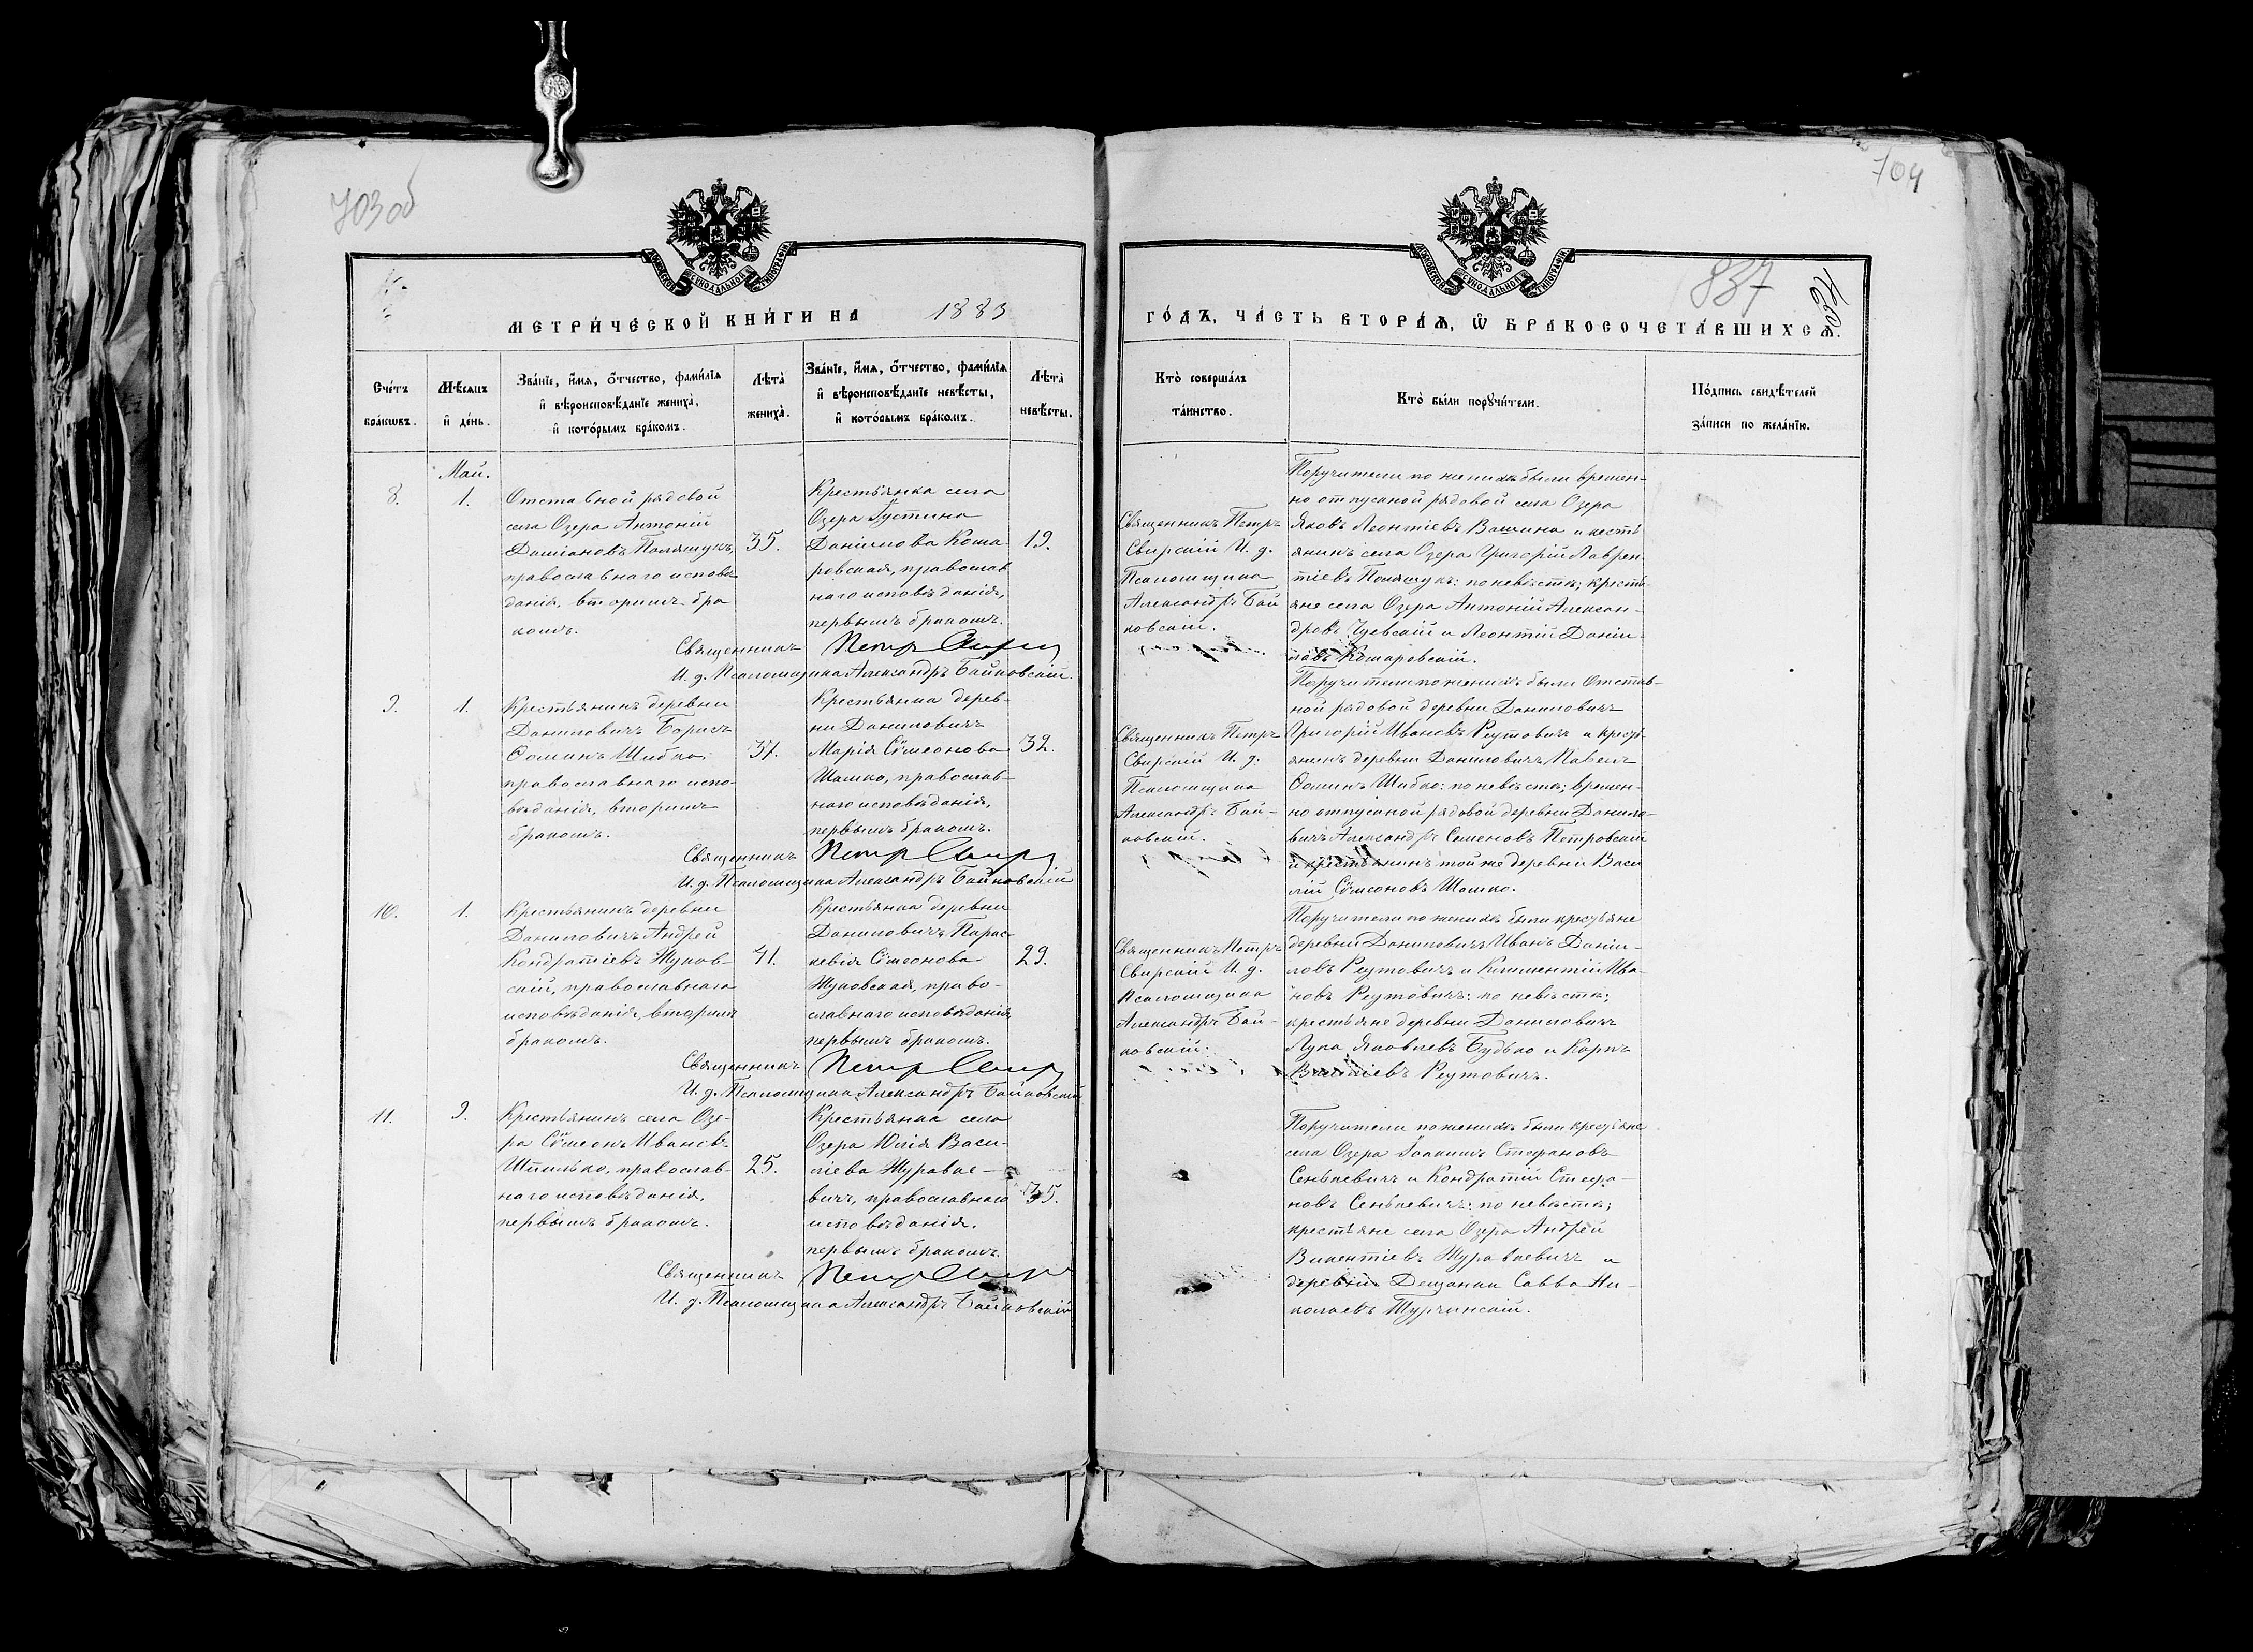 703об
704
837
МЕТРИ́ЧЕСКОЙ КНИ́ГИ НА 1883
ГО́ДЪ, ЧА́СТЬ ВТОРА́Ѧ, Ѽ БРАКОСОЧЕТА́ВШИХСѦ.
Сче́тъ бра́кѡвъ.
Мѣ́сяцъ и҆ де́нь.
Зва́нїе, и҆́мѧ, ѻ҆́тчество, фами́лїѧ
и҆ вѣроисповѣ́данїе жениха̀,
и҆ кото́рымъ бра́комъ.
Лѣта̀ жениха̀.
Зва́нїе, и҆́мѧ, ѻ҆́тчество, фами́лїѧ
и҆ вѣроисповѣ́данїе невѣ́сты,
и҆ кото́рымъ бра́комъ.
Лѣта̀ невѣ́сты.
Кто̀ соверша́лъ
та́инство.
Кто̀ бы́ли порꙋчи́тели.
По́дпись свидѣ́телей
за́писи по жела́нїю.
Май.
8.
1.
Отставной рядовой
села Озера Антоній
Даміановъ Полящукъ,
православнаго исповѣ
данія, вторымъ бра
комъ.
35.
Крестьянка села
Озера Іустина
Даніилова Кома
ровская, православ
наго исповѣданія,
первымъ бракомъ.
19.
Священникъ Петръ
И. д. Псаломщика Александръ Байковскій.
Священникъ Петръ
Свирскій И. д.
Псаломщика
Александръ Бай
ковскій.
Поручители по женихѣ были времен-
но отпускной рядовой села Озера
Яковъ Леонтіевъ Вашина и кресть
янинъ села Озера Григорій Лаврен
тіевъ Полящукъ: по невѣстѣ; кресть-
яне села Озера Антоній Алексан-
дровъ Чуевскій и Леонтій Даніи-
ловъ Комаровскій.
9.
1.
Крестьянинъ деревни
Даниловичъ Борисъ
Ѳоминъ Шибко,
православнаго испо-
вѣданія, вторымъ
бракомъ.
37.
Крестьянка дерев-
ни Даниловичъ
Марія Сѵмеонова
Шашко, православ-
наго исповѣданія,
первымъ бракомъ.
32.
Священникъ Петръ
И. д. Псаломщика Александръ Байковскій
Священникъ Петръ
Свирскій И. д.
Псаломщика
Александръ Бай-
ковскій.
Поручители по женихѣ были Отстав-
ной рядовой деревни Даниловичъ
Григорій Ивановъ Реутовичъ и кресть
янинъ деревни Даниловичъ Павелъ
Ѳоминъ Шибко: по невѣстѣ; времен-
но отпускной рядовой деревни Данило-
вичъ Александръ Семеновъ Петровскій
и крестьянинъ той же деревни Васи
лій Сѵмеоновъ Шашко.
10.
1.
Крестьянинъ деревни
Даниловичъ Андрей
Кондратіевъ Жуков-
скій, православнаго
исповѣданія, вторымъ
бракомъ.
41.
Крестьянка деревни
Даниловичъ Парас-
кевія Сѵмеонова
Жуковская, право-
славнаго исповѣданія,
первымъ бракомъ.
29.
Священникъ Петръ
И. д. Псаломщика Александръ Байковскій
Священникъ Петръ
Свирскій И. д.
Псаломщика
Александръ Бай-
ковскій.
Поручители по женихѣ были крестьяне
деревни Даниловичъ Иванъ Даніи-
ловъ Реутовичъ и Климентій Ива-
новъ Реутовичъ: по невѣстѣ;
крестьяне деревни Даниловичъ
Лука Яковлевъ Будько и Карпъ
Василіевъ Реутовичъ.
11.
9.
Крестьянинъ села Озе-
ра Сѵмеонъ Ивановъ
Шпилько, православ-
наго исповѣданія,
первымъ бракомъ.
25.
Крестьянка села
Озера Юлія Васи-
ліева Журавле-
вичъ, православнаго
исповѣданія.
первымъ бракомъ.
35.
Священникъ Петръ
И. д. Псаломщика Александръ Байковскій
Поручители по женихѣ были крестьяне
села Озера Іоакимъ Стефановъ
Сенькевичъ и Кондратій Стефа-
новъ Сенькевичъ: по невѣстѣ;
крестьяне села Озера Андрей
Викентіевъ Журавлевичъ и
деревни Дещанки Савва Ни-
колаевъ Турчинскій.